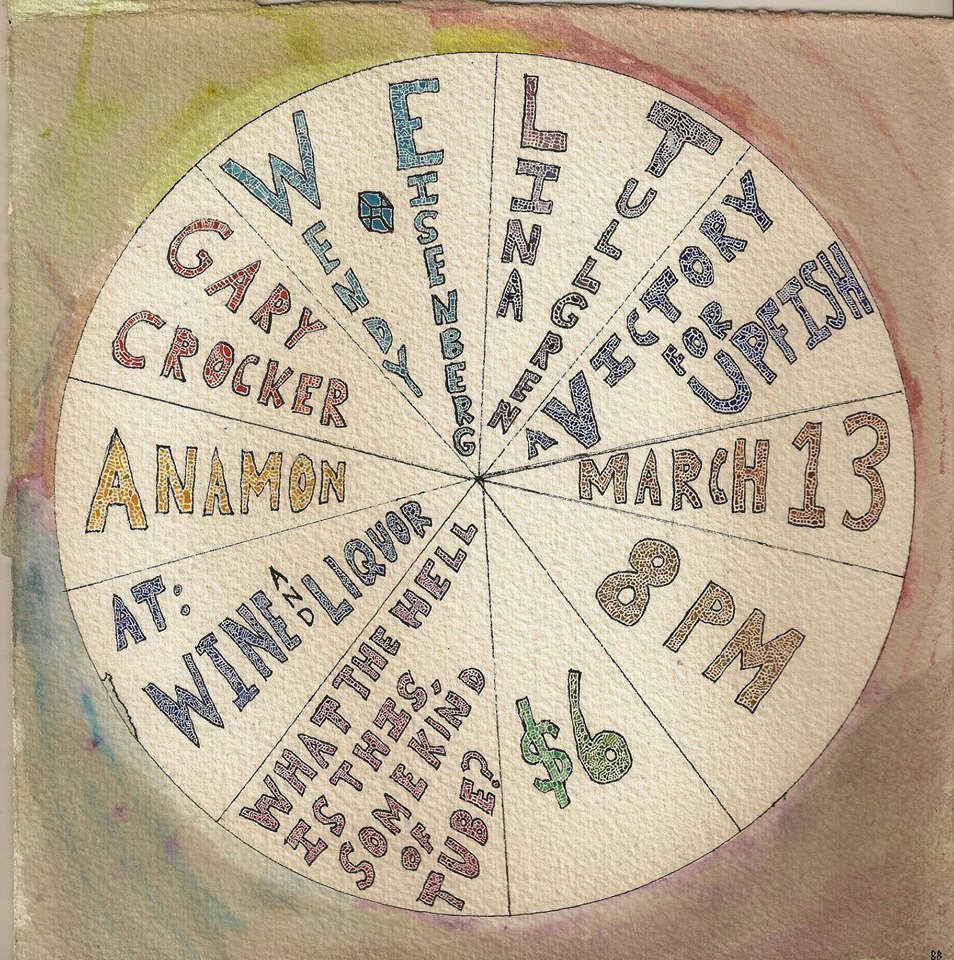 WENDY
EISENBERG
LINA
TULLGREN
A VICTORY
FOR
UPFISH
MARCH 13
8 PM
$6
WHAT THE HELL
IS THIS,
SOME KIND
OF
TUBE?
AT:
WINE AND LIQUOR
ANAMON
GARY
CROCKER
BB